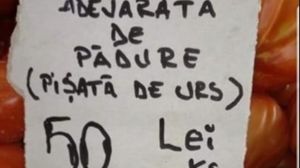 ADEJARATA
DE
PĂDURE
(PIȘATĂ DE URS)
50 Lei